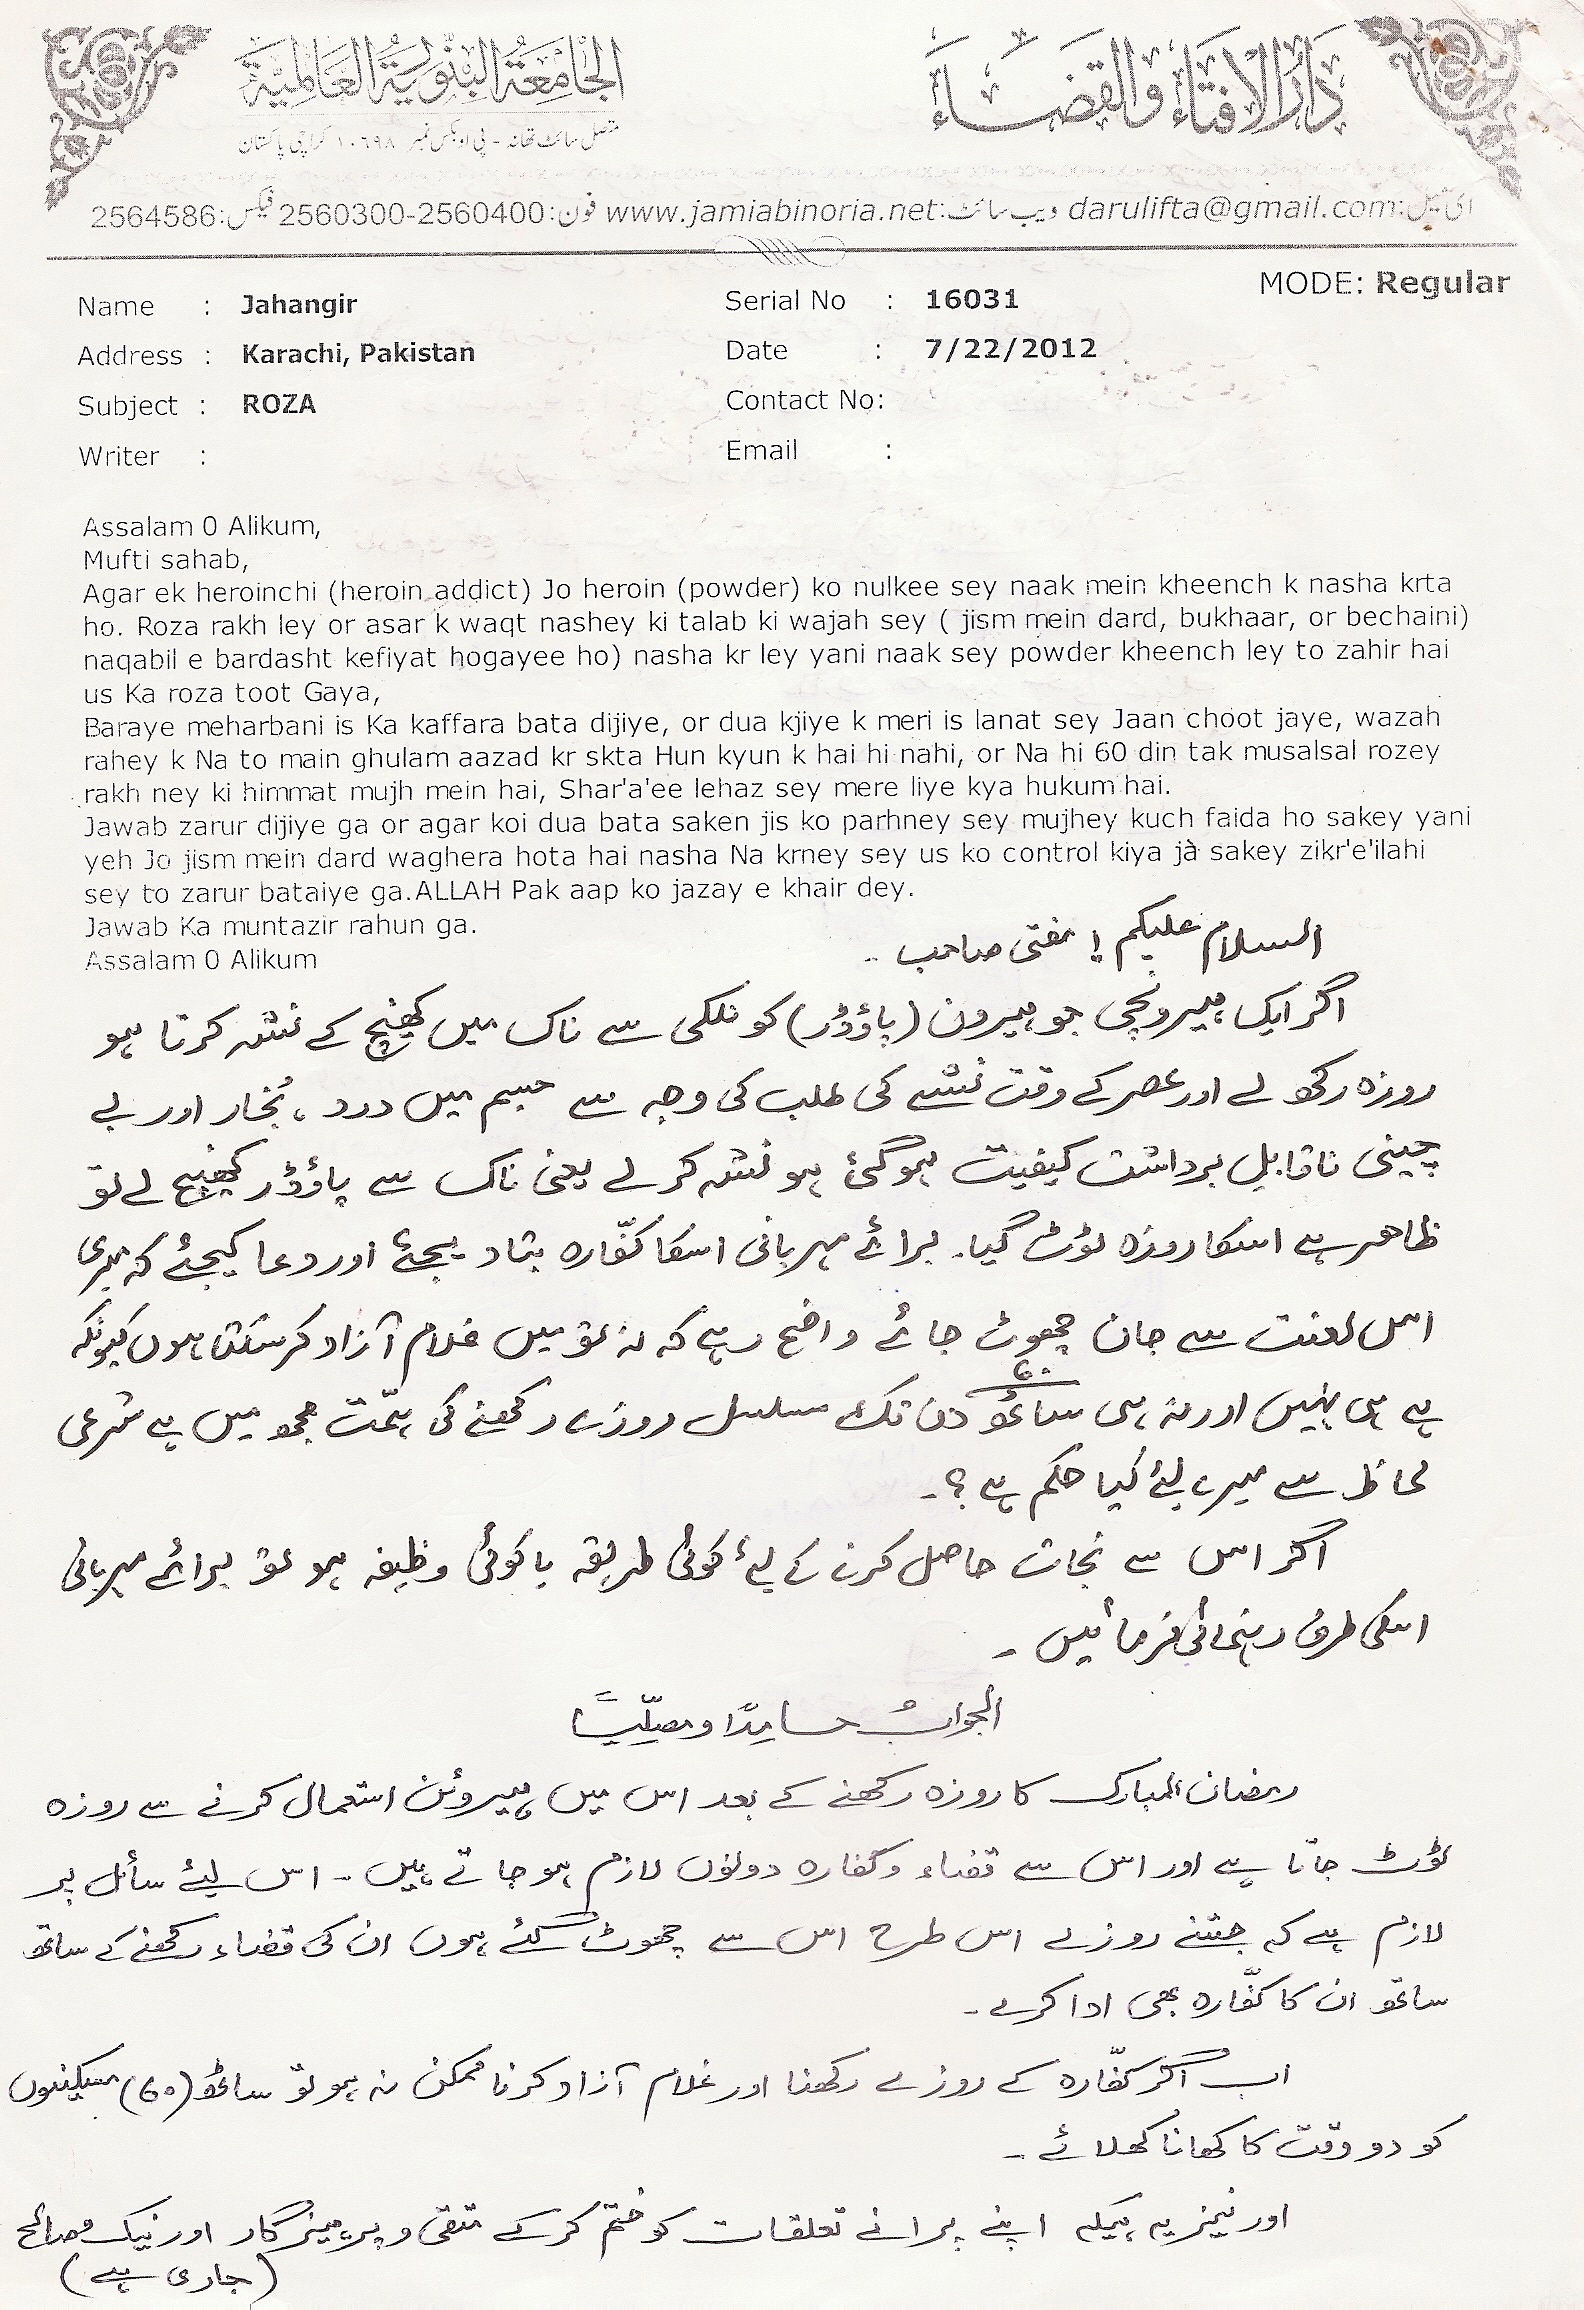 دَارُ الإفتَاء والقضَاء
الجَامِعَة البِنّورِيَة العَالمِيَّة
متصل سائٹ تھانہ - پی او بکس نمبر ۱۰۶۹۸ کراچی پاکستان
ای میل: darulifta@gmail.com ویب سائٹ: www.jamiabinoria.net فون: 2560300-2560400 فیکس: 2564586
MODE: Regular
Name : Jahangir Serial No : 16031
Address : Karachi, Pakistan Date : 7/22/2012
Subject : ROZA Contact No:
Writer : Email :
Assalam O Alikum,
Mufti sahab,
Agar ek heroinchi (heroin addict) Jo heroin (powder) ko nulkee sey naak mein kheench k nasha krta
ho. Roza rakh ley or asar k waqt nashey ki talab ki wajah sey ( jism mein dard, bukhaar, or bechaini)
naqabil e bardasht kefiyat hogayee ho) nasha kr ley yani naak sey powder kheench ley to zahir hai
us Ka roza toot Gaya,
Baraye meharbani is Ka kaffara bata dijiye, or dua kjiye k meri is lanat sey Jaan choot jaye, wazah
rahey k Na to main ghulam aazad kr skta Hun kyun k hai hi nahi, or Na hi 60 din tak musalsal rozey
rakh ney ki himmat mujh mein hai, Shar'a'ee lehaz sey mere liye kya hukum hai.
Jawab zarur dijiye ga or agar koi dua bata saken jis ko parhney sey mujhey kuch faida ho sakey yani
yeh Jo jism mein dard waghera hota hai nasha Na krney sey us ko control kiya jà sakey zikr'e'ilahi
sey to zarur bataiye ga.ALLAH Pak aap ko jazay e khair dey.
Jawab Ka muntazir rahun ga.
Assalam O Alikum
السلام علیکم! مفتی صاحب ۔
اگر ایک ہیرونچی جو ہیرون (پاؤڈر) کو نلکی سے ناک میں کھینچ کے نشہ کرتا ہو
روزہ رکھ لے اور عصر کے وقت نشے کی طلب کی وجہ سے جسم میں درد ، بُخار اور بے
چینی ناقابل برداشت کیفیت ہوگئ ہو نشہ کرلے یعنی ناک سے پاؤڈر کھینچ لے تو
ظاھر ہے اسکا روزہ ٹوٹ گیا۔ برائے مہربانی اسکا کفّارہ بتا دیجئے اور دعا کیجئے کہ میری
اس لعنت سے جان چھوٹ جائے واضح رہے کہ نہ تو میں غلام آزاد کر سکتا ہوں کیونکہ
ہے ہی نہیں اور نہ ہی ساٹھ ۶۰ دن تک مسلسل روزے رکھنے کی ہمّت مجھ میں ہے شرعی
لحاظ سے میرے لئے کیا حکم ہے ؟۔
اگر اس سے نجات حاصل کرنے کے لیے کوئی طریقہ یا کوئی وظیفہ ہو تو برائے مہربانی
اسکی طرف رہنمائی فرمائیں ۔
الجوابُ حامِدًا ومصلّیًا
رمضان المبارک کا روزہ رکھنے کے بعد اس میں ہیروئن استعمال کرنے سے روزہ
ٹوٹ جاتا ہے اور اس سے قضاء وکفارہ دونوں لازم ہوجاتے ہیں ۔ اس لیئے سائل پر
لازم ہے کہ جتنے روزے اس طرح اس سے چھوٹ گئے ہوں ان کی قضاء رکھنے کے ساتھ
ساتھ ان کا کفّارہ بھی ادا کرے ۔
اب اگر کفّارہ کے روزے رکھنا اور غلام آزاد کرنا ممکن نہ ہو تو ساٹھ (۶۰) مسکینوں
کو دو وقت کا کھانا کھلائے ۔
اور نیز یہ ہیکہ اپنے پرانے تعلقات کو ختم کرکے متقی و پرہیزگار اور نیک وصالح
(جاری ہے)